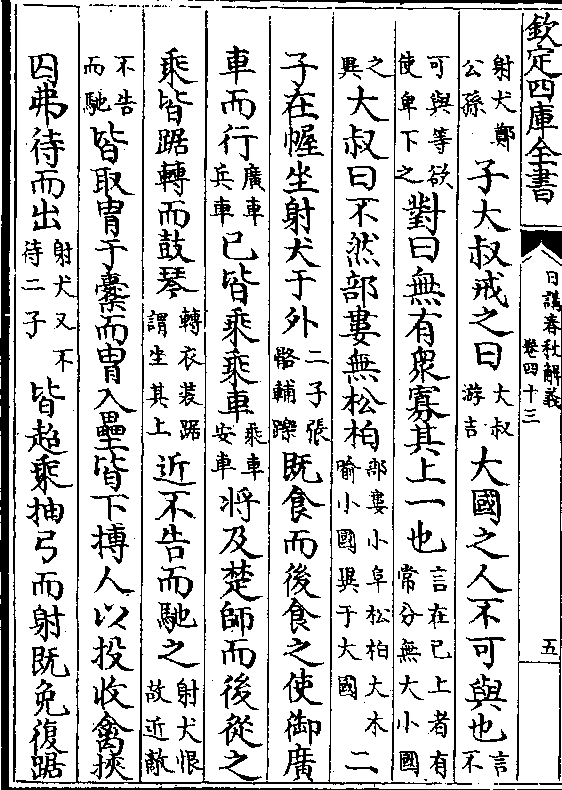 欽定四庫全書
日講春秋解義
卷四十三
五
射犬鄭公孫子大叔戒之曰大叔游吉大國之人不可與也言不
可與等欲使卑下之對曰無有衆寡其上一也言在已上者有常分無大小國
之異大叔曰不然部婁無松柏部婁小阜松柏大木喻小國異于大國二
子在幄坐射犬于外二子張骼輔躒既食而後食之使御廣
車而行廣車兵車已皆乘乘車乘車安車將及楚師而後從之
乘皆踞轉而鼓琴轉衣裝踞謂坐其上近不告而馳之射犬恨故近敵
不告而馳皆取冑于櫜而冑入壘皆下搏人以投收禽挾
囚弗待而出射犬又不待二子皆超乘抽弓而射既免復踞